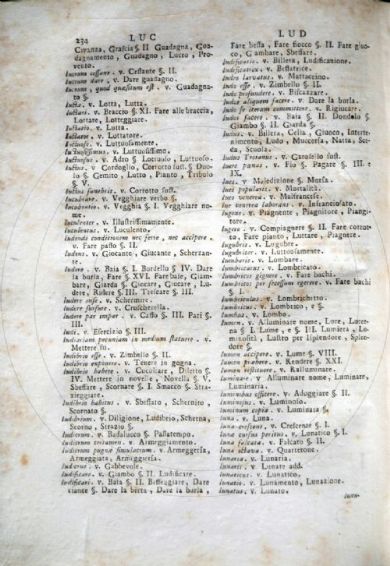 232 LUC
Civanza, Grascia §. II Guadagna, Gua-
dagnamento, Guadagno, Lucro, Pro-
vento.
lucrum cessans. v. Cessante §. II.
lucrum dare, v. Dare guadagno.
lucrum quod quæsitum est. v. Guadagna-
to §.
lucta. v. Lotta, Lutta.
luctari. v. Braccio §. XI. Fare alle braccia,
Lottare, Lotteggiare.
luctatio. v. Lotta.
luctator. v. Lottatore.
luctuose. v. Luttuosamente.
luctuosissimus. v. Luttuosissimo.
luctuosus. v. Adro §. Luttuoso, Luttuoso.
luctus. v. Cordoglio, Corrotto sust. §. Duo-
lo §. Gemito, Lutto, Pianto, Tribulo
§. V.
luctus funebris. v. Corrotto sust.
lucubrare. v. Vegghiare verbo §.
lucubratio. v. Vegghia §. I. Vegghiare no-
me.
luculenter. v. Illustrissimamente.
luculentus. v. Luculento.
ludendi conditionem nec ferre, nec accipere.
v. Fare passo §. II.
ludens. v. Giocante, Giucante, Scherzan-
te.
ludere. v. Baia §. I. Bordello §. IV. Dare
la burla, Fare §. XVI. Fare baie, Giam-
bare, Giarda §. Giocare, Giucare, Lu-
dere, Ridere §. III. Treicare §. III.
ludere ense. v. Schermire.
ludere sponse. v. Cruscherella.
ludere par impar. v. Caffo §. III. Pari §.
III.
ludi. v. Esercizio §. III.
ludibrium pecuniam in medium statuere. v.
Mettere su.
ludibrio esse. v. Zimbello §. II.
ludibrio exponere. v. Tenere in gogna.
ludibrio habere. v. Coccolare, Diletto §.
IV. Mettere in novelle, Novella §. V.
Sbeffare, Scornare §. I. Stracco §. Stra-
zieggiare.
ludibrio habitus. v. Sbeffato, Schernito,
Scornato §.
ludibrium. v. Diligione, Ludibrio, Scherna,
Scorno, Strazio §.
ludicrum. v. Badalucco §. Passatempo.
ludicrum certamen. v. Armeggiamento.
ludicrum pugnæ simulacrum. v. Armeggeria,
Armeggiata, Armeggeria.
ludicrus. v. Gabbevole.
ludificare. v. Giambo §. II. Ludificare.
ludificari. v. Baia §. II. Beffeggiare, Dare
vante §. Dare la berta, Dare la burla,
LUD
Fare beffa, Fare fiocco §. II. Fare giuo-
co, Giambare, Sbeffare.
ludificatio. v. Billera, Ludificazione.
ludificatrix. v. Beffatrice.
ludio larvatus. v. Mattaccino.
ludo esse. v. Zimbello §. II.
ludo profundere. v. Biscazzare.
ludos aliquem facere. v. Dare la burla.
ludos se iterum committere. v. Rigiucare.
ludos facere. v. Baia §. II. Dondolo §.
Giambo §. II. Giarda §.
ludus. v. Billera, Celia, Giuoco, Intratte-
nimento, Ludo, Muccerìa, Natta, Scè-
da, Scuola.
ludus Troianus. v. Carosello sust.
luere pœnas. v. Fio §. Pagare §. III. e
IX.
lues. v. Maledizione §. Morìa.
lues popularis. v. Mortalità.
lues venerea. v. Malfrancese.
lue venerea laborans. v. Infranciosato.
lugens. v. Piagnente, Piagnitore, Piangi-
tore.
lugere. v. Compiagnere §. II. Fare corrot-
to, Fare pianto, Luttare, Piagnere.
lugubris. v. Lugubre.
lugubriter. v. Luttuosamente.
lumbare. v. Lombare.
lumbricatus. v. Lombricato.
lumbricos gignere. v. Fare bachi.
lumbricos per secessum egerere. v. Fare bachi
§. I.
lumbriculus. v. Lombrichetto.
lumbricus. v. Lombrico, e §.
lumbus. v. Lombo.
lumen. v. Alluminare nome, Luce, Lucer-
na §. I. Lume, e §. III. Lumiera, Lu-
minosità, Lustro per splendore, Splen-
dore §.
lumen accipere. v. Lume §. VIII.
lumen præbere. v. Rendere §. XXI.
lumen restituere. v. Ralluminare.
luminare. v. Alluminare nome, Luminare,
Luminaria.
luminibus officere. v. Aduggiare §. II.
luminosus. v. Luminoso.
luminum copia. v. Luminaria §.
luna. v. Luna.
luna crescens. v. Crescente §. I.
luna cursus peritus. v. Lunatico §. I.
luna falcata. v. Falcato §. II.
luna octava. v. Quartone.
lunaria. v. Lunaria.
lunaris. v. Lunare add.
lunaticus. v. Lunatico.
lunatio. v. Lunamento, Lunazione.
lunatus. v. Lunato.